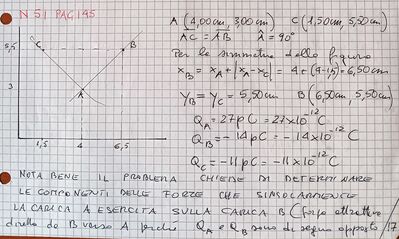 N 51 PAG 195
A (4,00cm, 3,00cm) C (1,50cm, 5,50cm)
AC = AB Â = 90°
Per la simmetria della figura
x_B = x_A + |x_A - x_C| = 4 + (4-1,5) = 6,50cm
y_B = y_C = 5,50cm B (6,50cm, 5,50cm)
Q_A = 27pC = 27x10^-12 C
Q_B = -14pC = -14x10^-12 C
Q_C = -11pC = -11x10^-12 C
5,5 C B
3 A
1,5 4 6,5
NOTA BENE IL PROBLEMA CHIEDE DI DETERMINARE
LE COMPONENTI DELLE FORZE CHE SINGOLARMENTE
LA CARICA A ESERCITA SULLA CARICA B (forza attrattiva
diretta da B verso A perché Q_A e Q_B sono di segno opposto)